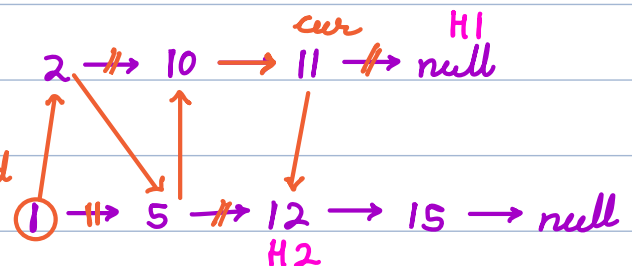 cur H1
2 → 10 → 11 → null
1 → 5 → 12 → 15 → null
H2